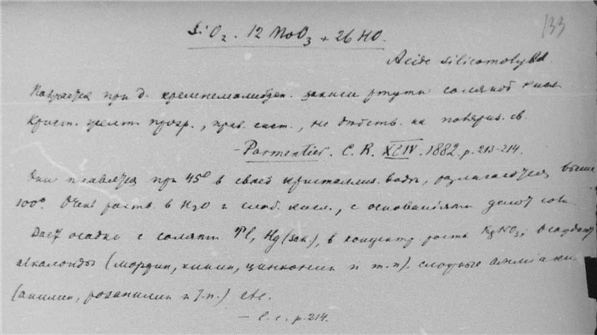 133
SiO2 . 12 MoO3 + 26 HO.
Acide silicomolybd.
при д. кремнемолибден. закиси ртути соляной кисл.
Крист. желт. прозр., прав. сист., не действ. на поляриз. св.
- Parmentier. C. R. XCIV. 1882 p. 213-214.
Они плавятся при 45° в своей кристаллиз. воды, разлагаются выше
100°. Очень раств. в H2O и слаб. кисл., с основаниями дают соли
Дает осадки с солями Tl, Hg (зак), в концентр. раств.
алкалоиды (морфин, хинин, цинхонин и т.п.) сложные
(анилин, розанилин и т.п.) etc.
- l. c. p. 214.